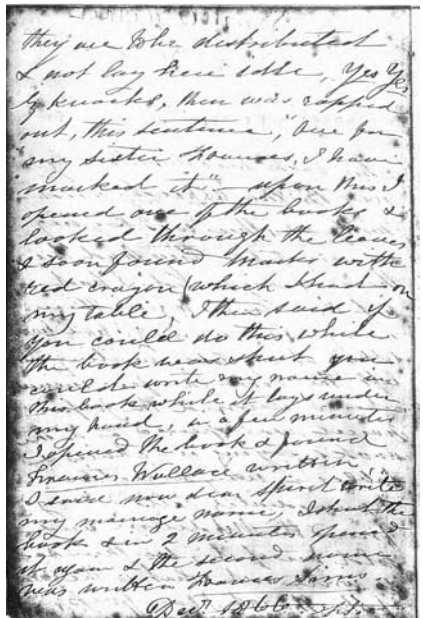 they are to be distributed
& not lay here idle, Yes Yes
by knocks, then was rapped
out, this sentence, "One for
my sister Frances, I have
marked it" – upon this I
opened one of the books &
looked through the leaves
& soon found marks with
red crayon (which I had on
my table, I then said if
you could do this while
the book was shut you
could write my name in
this book while it lays under
my hand, in a few minutes
I opened the book & found
Frances Wallace written,
I said now dear spirit write
my marriage name, I shut the
book & in 2 minutes opened
it again & the second name
was written Frances Sims.
Decr 1866